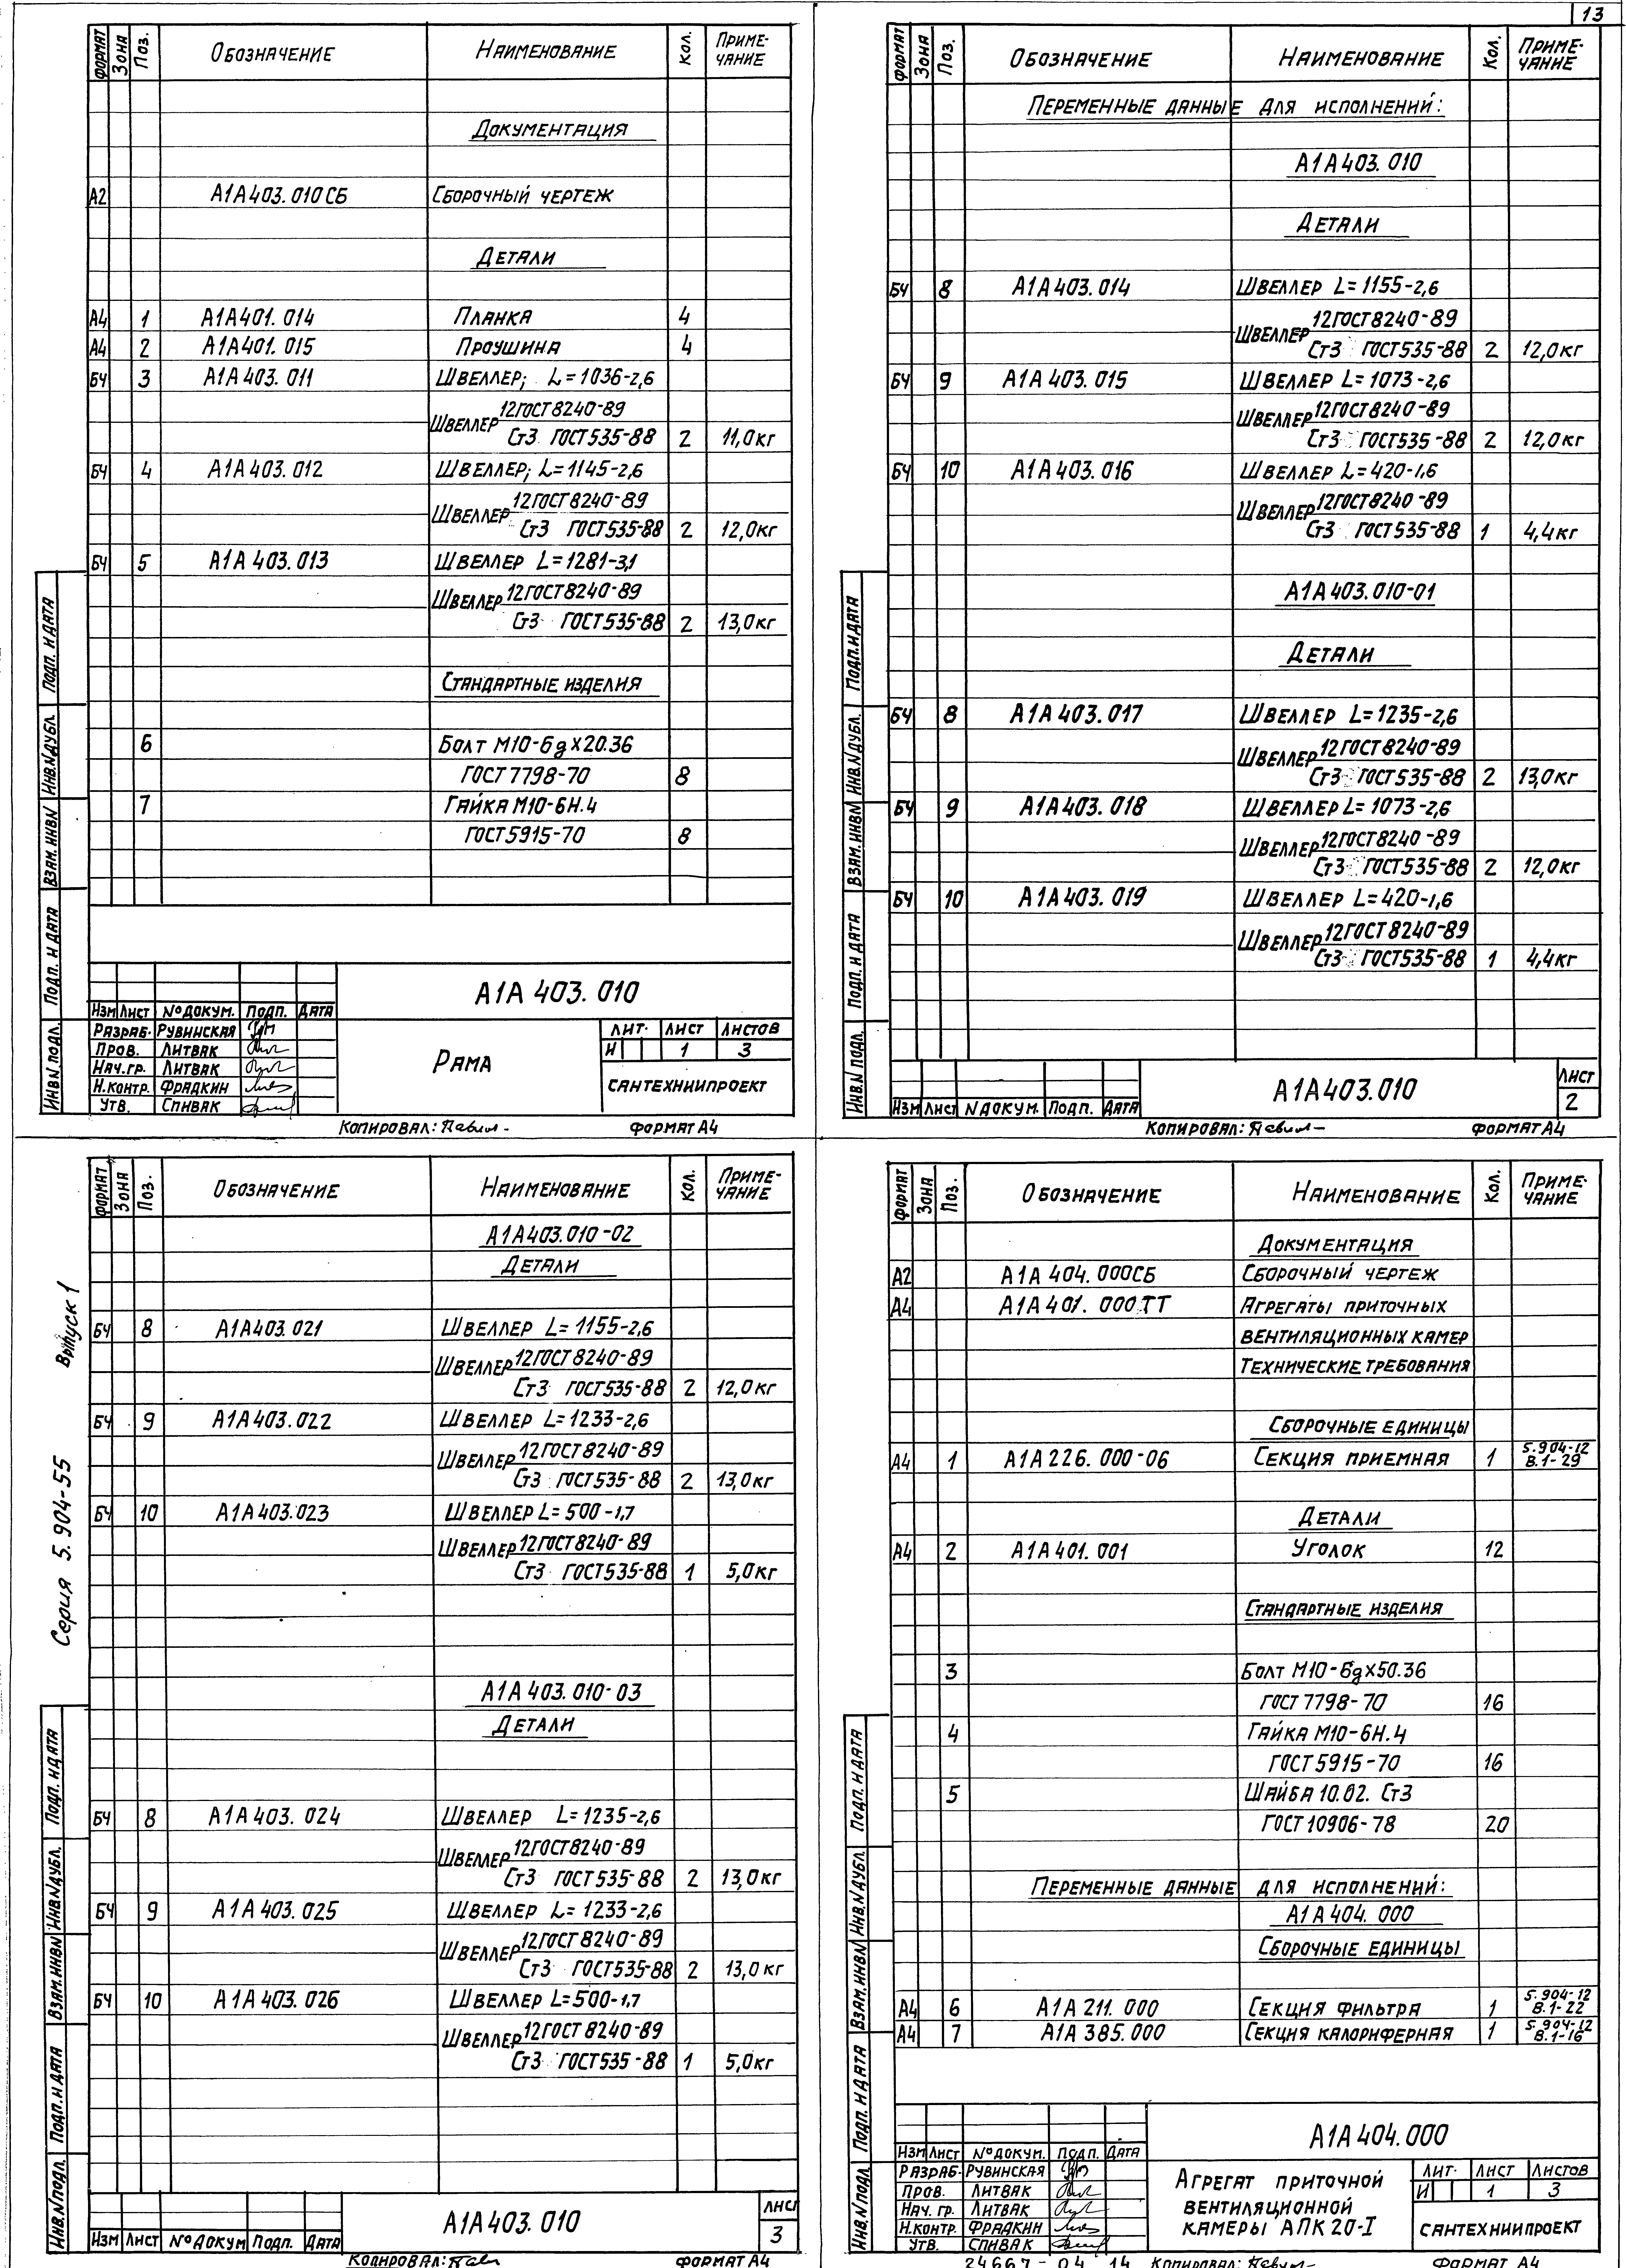 13
ФОРМАТ ЗОНА ПОЗ. ОБОЗНАЧЕНИЕ НАИМЕНОВАНИЕ КОЛ. ПРИМЕ-
ЧАНИЕ
ДОКУМЕНТАЦИЯ
А2 А1А403.010СБ СБОРОЧНЫЙ ЧЕРТЕЖ
ДЕТАЛИ
А4 1 А1А401.014 ПЛАНКА 4
А4 2 А1А401.015 ПРОУШИНА 4
БЧ 3 А1А403.011 ШВЕЛЛЕР; L=1036-2,6
ШВЕЛЛЕР 12ГОСТ8240-89
Ст3 ГОСТ535-88 2 11,0кг
БЧ 4 А1А403.012 ШВЕЛЛЕР; L=1145-2,6
ШВЕЛЛЕР 12ГОСТ8240-89
Ст3 ГОСТ535-88 2 12,0кг
БЧ 5 А1А403.013 ШВЕЛЛЕР L=1281-3,1
ШВЕЛЛЕР 12ГОСТ8240-89
Ст3 ГОСТ535-88 2 13,0кг
СТАНДАРТНЫЕ ИЗДЕЛИЯ
6 БОЛТ М10-6gх20.36
ГОСТ7798-70 8
7 ГАЙКА М10-6Н.4
ГОСТ5915-70 8
ПОДП. И ДАТА
ИНВ.№ДУБЛ.
ВЗАМ.ИНВ№
ПОДП. И ДАТА
ИНВ.№ПОДЛ.
А1А403.010
ИЗМ ЛИСТ №ДОКУМ. ПОДП. ДАТА
РАЗРАБ. РУВИНСКАЯ
ПРОВ. ЛИТВАК
НАЧ.ГР. ЛИТВАК
Н.КОНТР. ФРАДКИН
УТВ. СПИВАК
РАМА
ЛИТ. ЛИСТ ЛИСТОВ
И 1 3
САНТЕХНИИПРОЕКТ
КОПИРОВАЛ: ФОРМАТ А4
ФОРМАТ ЗОНА ПОЗ. ОБОЗНАЧЕНИЕ НАИМЕНОВАНИЕ КОЛ. ПРИМЕ-
ЧАНИЕ
ПЕРЕМЕННЫЕ ДАННЫЕ ДЛЯ ИСПОЛНЕНИЙ:
А1А403.010
ДЕТАЛИ
БЧ 8 А1А403.014 ШВЕЛЛЕР L=1155-2,6
ШВЕЛЛЕР 12ГОСТ8240-89
Ст3 ГОСТ535-88 2 12,0кг
БЧ 9 А1А403.015 ШВЕЛЛЕР L=1073-2,6
ШВЕЛЛЕР 12ГОСТ8240-89
Ст3 ГОСТ535-88 2 12,0кг
БЧ 10 А1А403.016 ШВЕЛЛЕР L=420-1,6
ШВЕЛЛЕР 12ГОСТ8240-89
Ст3 ГОСТ535-88 1 4,4кг
А1А403.010-01
ДЕТАЛИ
БЧ 8 А1А403.017 ШВЕЛЛЕР L=1235-2,6
ШВЕЛЛЕР 12ГОСТ8240-89
Ст3 ГОСТ535-88 2 13,0кг
БЧ 9 А1А403.018 ШВЕЛЛЕР L=1073-2,6
ШВЕЛЛЕР 12ГОСТ8240-89
Ст3 ГОСТ535-88 2 12,0кг
БЧ 10 А1А403.019 ШВЕЛЛЕР L=420-1,6
ШВЕЛЛЕР 12ГОСТ8240-89
Ст3 ГОСТ535-88 1 4,4кг
ПОДП.И ДАТА
ИНВ.№ДУБЛ.
ВЗАМ.ИНВ№
ПОДП. И ДАТА
ИНВ.№ ПОДЛ.
ИЗМ ЛИСТ №ДОКУМ. ПОДП. ДАТА
А1А403.010
ЛИСТ
2
КОПИРОВАЛ: ФОРМАТ А4
Серия 5.904-55 Выпуск 1
ФОРМАТ ЗОНА ПОЗ. ОБОЗНАЧЕНИЕ НАИМЕНОВАНИЕ КОЛ. ПРИМЕ-
ЧАНИЕ
А1А403.010-02
ДЕТАЛИ
БЧ 8 А1А403.021 ШВЕЛЛЕР L=1155-2,6
ШВЕЛЛЕР 12ГОСТ8240-89
Ст3 ГОСТ535-88 2 12,0кг
БЧ 9 А1А403.022 ШВЕЛЛЕР L=1233-2,6
ШВЕЛЛЕР 12ГОСТ8240-89
Ст3 ГОСТ535-88 2 13,0кг
БЧ 10 А1А403.023 ШВЕЛЛЕР L=500-1,7
ШВЕЛЛЕР 12ГОСТ8240-89
Ст3 ГОСТ535-88 1 5,0кг
А1А403.010-03
ДЕТАЛИ
БЧ 8 А1А403.024 ШВЕЛЛЕР L=1235-2,6
ШВЕЛЛЕР 12ГОСТ8240-89
Ст3 ГОСТ535-88 2 13,0кг
БЧ 9 А1А403.025 ШВЕЛЛЕР L=1233-2,6
ШВЕЛЛЕР 12ГОСТ8240-89
Ст3 ГОСТ535-88 2 13,0кг
БЧ 10 А1А403.026 ШВЕЛЛЕР L=500-1,7
ШВЕЛЛЕР 12ГОСТ8240-89
Ст3 ГОСТ535-88 1 5,0кг
ПОДП. И ДАТА
ИНВ.№ДУБЛ.
ВЗАМ.ИНВ№
ПОДП. И ДАТА
ИНВ.№ПОДЛ.
ИЗМ ЛИСТ №ДОКУМ ПОДП. ДАТА
А1А403.010
ЛИСТ
3
КОПИРОВАЛ: ФОРМАТ А4
ФОРМАТ ЗОНА ПОЗ. ОБОЗНАЧЕНИЕ НАИМЕНОВАНИЕ КОЛ. ПРИМЕ-
ЧАНИЕ
ДОКУМЕНТАЦИЯ
А2 А1А404.000СБ СБОРОЧНЫЙ ЧЕРТЕЖ
А4 А1А401.000ТТ АГРЕГАТЫ ПРИТОЧНЫХ
ВЕНТИЛЯЦИОННЫХ КАМЕР
ТЕХНИЧЕСКИЕ ТРЕБОВАНИЯ
СБОРОЧНЫЕ ЕДИНИЦЫ
А4 1 А1А226.000-06 СЕКЦИЯ ПРИЕМНАЯ 1 5.904-12
В.1-29
ДЕТАЛИ
А4 2 А1А401.001 УГОЛОК 12
СТАНДАРТНЫЕ ИЗДЕЛИЯ
3 БОЛТ М10-6gх50.36
ГОСТ7798-70 16
4 ГАЙКА М10-6Н.4
ГОСТ5915-70 16
5 ШАЙБА 10.02. Ст3
ГОСТ10906-78 20
ПЕРЕМЕННЫЕ ДАННЫЕ ДЛЯ ИСПОЛНЕНИЙ:
А1А404.000
СБОРОЧНЫЕ ЕДИНИЦЫ
А4 6 А1А211.000 СЕКЦИЯ ФИЛЬТРА 1 5.904-12
В.1-22
А4 7 А1А385.000 СЕКЦИЯ КАЛОРИФЕРНАЯ 1 5.904-12
В.1-16
ПОДП. И ДАТА
ИНВ.№ДУБЛ.
ВЗАМ.ИНВ№
ПОДП. И ДАТА
ИНВ.№ПОДЛ
А1А404.000
ИЗМ ЛИСТ №ДОКУМ. ПОДП. ДАТА
РАЗРАБ. РУВИНСКАЯ
ПРОВ. ЛИТВАК
НАЧ. ГР. ЛИТВАК
Н.КОНТР. ФРАДКИН
УТВ. СПИВАК
АГРЕГАТ ПРИТОЧНОЙ
ВЕНТИЛЯЦИОННОЙ
КАМЕРЫ АПК20-I
ЛИТ. ЛИСТ ЛИСТОВ
И 1 3
САНТЕХНИИПРОЕКТ
24667-04 14 КОПИРОВАЛ: ФОРМАТ А4